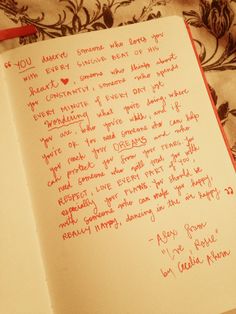 " YOU deserve someone who loves you
with EVERY SINGLE BEAT OF HIS
heart ♥, someone who thinks about
you CONSTANTLY, someone who spends
EVERY MINUTE of EVERY DAY just
Wondering what you're doing, where
you are, who you're with, and if
you're OK. You need someone who can help
you reach your DREAMS and who
can protect you from your FEARS. You
need someone who will treat you with
RESPECT, LOVE EVERY PART of YOU,
especially your FLAWS. You should be
with someone who can make you happy,
REALLY HAPPY, dancing in the air happy. "
- Alex from
"Love, Rosie"
by Cecelia Ahern